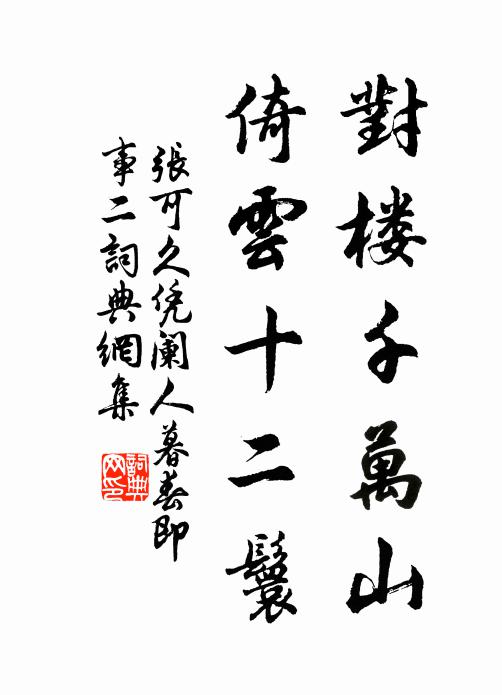 對楼千萬山
倚雲十二鬟
張可久凭阑人暮春即
事二詞典網集
詞典
网印